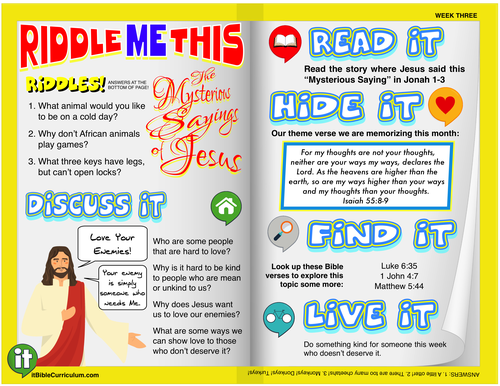 WEEK THREE
RIDDLE ME THIS
RiDDLES!
ANSWERS AT THE
BOTTOM OF PAGE!
1. What animal would you like
to be on a cold day?
2. Why don't African animals
play games?
3. What three keys have legs,
but can't open locks?
The
Mysterious
Sayings
of
Jesus
DiSCUSS iT
Love Your
Enemies!
Your enemy
is simply
someone who
needs Me.
Who are some people
that are hard to love?
Why is it hard to be kind
to people who are mean
or unkind to us?
Why does Jesus want
us to love our enemies?
What are some ways we
can show love to those
who don't deserve it?
it
itBibleCurriculum.com
READ iT
Read the story where Jesus said this
“Mysterious Saying” in Jonah 1-3
HiDE iT
Our theme verse we are memorizing this month:
For my thoughts are not your thoughts,
neither are your ways my ways, declares the
Lord. As the heavens are higher than the
earth, so are my ways higher than your ways
and my thoughts than your thoughts.
Isaiah 55:8-9
FiND iT
Look up these Bible
verses to explore this
topic some more:
Luke 6:35
1 John 4:7
Matthew 5:44
LiVE iT
Do something kind for someone this week
who doesn't deserve it.
ANSWERS: 1. A little otter! 2. There are too many cheetahs! 3. Monkeys! Donkeys! Turkeys!